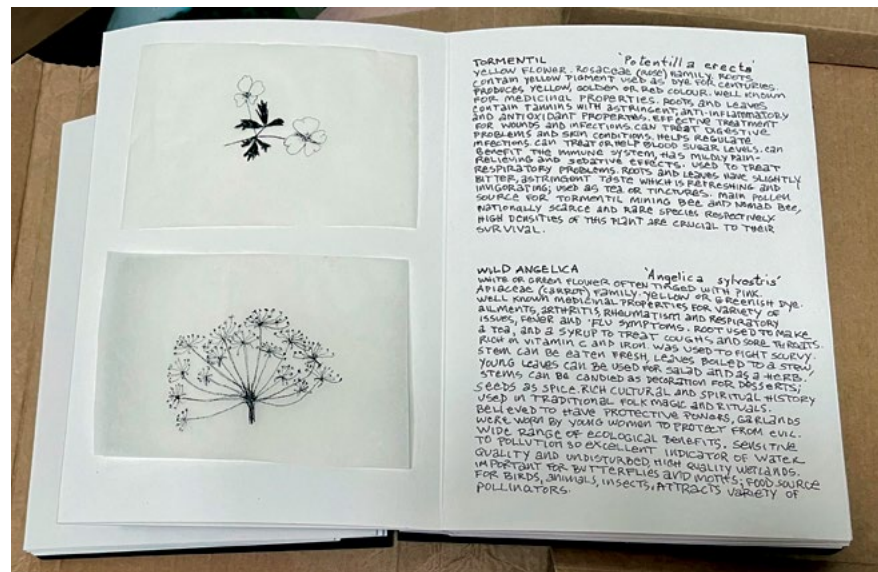 TORMENTIL 'Potentilla erecta'
YELLOW FLOWER. ROSACEAE (ROSE) FAMILY. ROOTS
CONTAIN YELLOW PIGMENT USED AS DYE FOR CENTURIES.
PRODUCES YELLOW, GOLDEN OR RED COLOUR. WELL KNOWN
FOR MEDICINAL PROPERTIES. ROOTS AND LEAVES
CONTAIN TANNINS WITH ASTRINGENT, ANTI-INFLAMMATORY
AND ANTIOXIDANT PROPERTIES. EFFECTIVE TREATMENT
FOR WOUNDS AND INFECTIONS. CAN TREAT DIGESTIVE
PROBLEMS AND SKIN CONDITIONS. HELPS REGULATE
INFECTIONS. CAN TREAT OR HELP BLOOD SUGAR LEVELS. CAN
BENEFIT THE IMMUNE SYSTEM, HAS MILDLY PAIN-
RELIEVING AND SEDATIVE EFFECTS. USED TO TREAT
RESPIRATORY PROBLEMS. ROOTS AND LEAVES HAVE SLIGHTLY
BITTER, ASTRINGENT TASTE WHICH IS REFRESHING AND
INVIGORATING; USED AS TEA OR TINCTURES. MAIN POLLEN
SOURCE FOR TORMENTIL MINING BEE AND NOMAD BEE,
NATIONALLY SCARCE AND RARE SPECIES RESPECTIVELY
HIGH DENSITIES OF THIS PLANT ARE CRUCIAL TO THEIR
SURVIVAL.
WILD ANGELICA 'Angelica sylvestris'
WHITE OR GREEN FLOWER OFTEN TINGED WITH PINK.
APIACEAE (CARROT) FAMILY. YELLOW OR GREENISH DYE.
WELL KNOWN MEDICINAL PROPERTIES FOR VARIETY OF
AILMENTS, ARTHRITIS, RHEUMATISM AND RESPIRATORY
ISSUES, FEVER AND 'FLU SYMPTOMS. ROOT USED TO MAKE
A TEA, AND A SYRUP TO TREAT COUGHS AND SORE THROATS.
RICH IN VITAMIN C AND IRON. WAS USED TO FIGHT SCURVY.
STEM CAN BE EATEN FRESH, LEAVES BOILED TO A STEW.
YOUNG LEAVES CAN BE USED FOR SALAD AND AS A HERB.
STEMS CAN BE CANDIED AS DECORATION FOR DESSERTS;
SEEDS AS SPICE. RICH CULTURAL AND SPIRITUAL HISTORY
USED IN TRADITIONAL FOLK MAGIC AND RITUALS.
BELIEVED TO HAVE PROTECTIVE POWERS, GARLANDS
WERE WORN BY YOUNG WOMEN TO PROTECT FROM EVIL.
WIDE RANGE OF ECOLOGICAL BENEFITS. SENSITIVE
TO POLLUTION SO EXCELLENT INDICATOR OF WATER
QUALITY AND UNDISTURBED, HIGH QUALITY WETLANDS.
IMPORTANT FOR BUTTERFLIES AND MOTHS; FOOD SOURCE
FOR BIRDS, ANIMALS, INSECTS, ATTRACTS VARIETY OF
POLLINATORS.